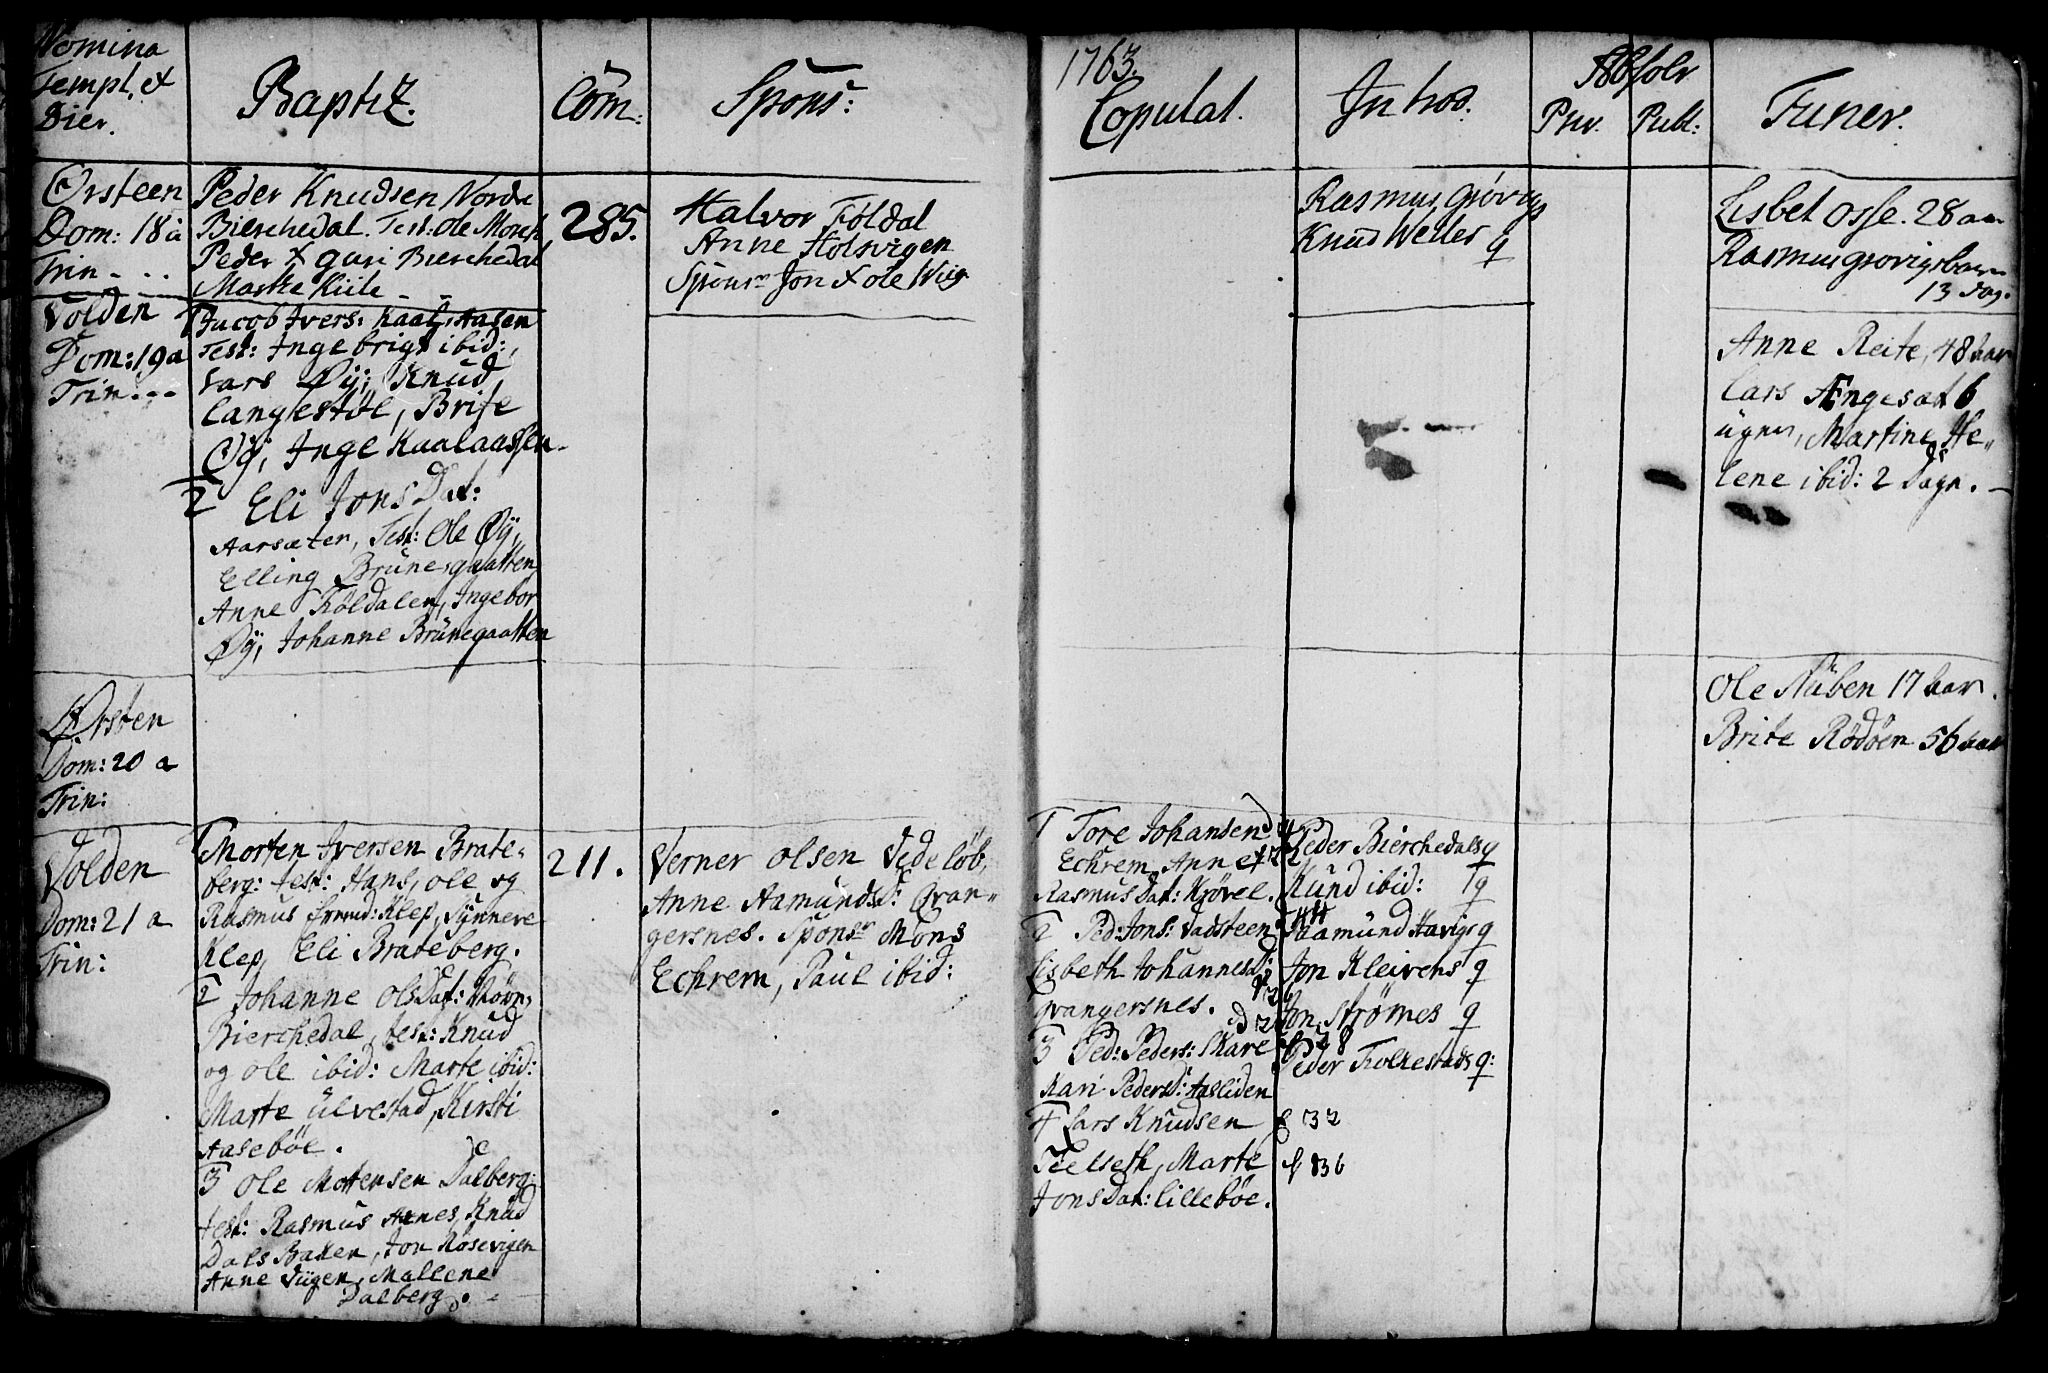 Nomina
Templ. et
Dier.
Baptiz.
Com:
Spons:
1763.
Copulat.
Introd.
Absolv
Priv.
Publ:
Funer.
Ørsteen
Dom: 18 a
Trin - . .
Peder Knudsen Nordre
Bierchedal. Test: Ole Monch
Peder & guri Bierchedal
Marte Kiile - -
285.
Halvor Føldal
Anne Holsvigen
Sponsr Jon & ole Wiig
Rasmus Grøvigs
Knud Welles q
Lisbet Osse. 28 aar
Rasmus grovigs barn
13 dag.
Volden
Dom: 19 a
Trin - - -
1 Jacob Ivers: Kaalaasen
Test: Ingebrigt ibid:,
Lars Øÿ, Knud
Langestøl, Brite
Øÿ, Inge Kaalaassen
2 Eli Jons Dat:
Aarsæter, Test: Ole Øÿ,
Elling Brunegaatten
Anne Føldalen, Ingebor
Øÿ, Johanne Brunegaatten
Anne Reite, 48 aar
Lars Engeset 6
ugen, Martine He-
lene ibid: 2 Dage. -
Ørsten
Dom: 20 a
Trin:
Ole Nuben 17 aar.
Brite Rødøen 56 aar
Volden
Dom: 21 a
Trin:
1 Morten Iversen Brate-
berg: test: Hans, ole og
Rasmus Klep, Synneve
Klep, Eli Brateberg.
2 Johanne Ols Dat:
Bierchedal, test: Knud
og ole ibid: Marte ibid:
Marte Ulvestad, Kirsti
Aasebøe.
3 Ole Mortensen Dalberg:
test: Rasmus Aarnes, Knud
Dals Baken, Jon Røsevigen
Anne Viigen, Mallene
Dalberg. -
211.
Verner Olsen Vedeløb,
Anne Aamunds D: Qvan-
gersnes. Sponsr Mons
Echrem, Paul ibid:
1 Tore Johansen
Echrem, Anne
Rasmus Dat: Krøvel.
2 Ped: Jons: Vadsteen
Lisbeth Johannes D:
Qvangersnes.
3 Ped: Peders: Skare
Kari Peders D: Aasliden
4 Lars Knudsen
Teelseth, Marte
Jons Dat: Lillebøe.
Peder Bierchedals q
Knud ibid: q
Aamund Havigs q
Jon Kleivens q
Jon Strømes q
28
Peder Folkestads q:
32
36